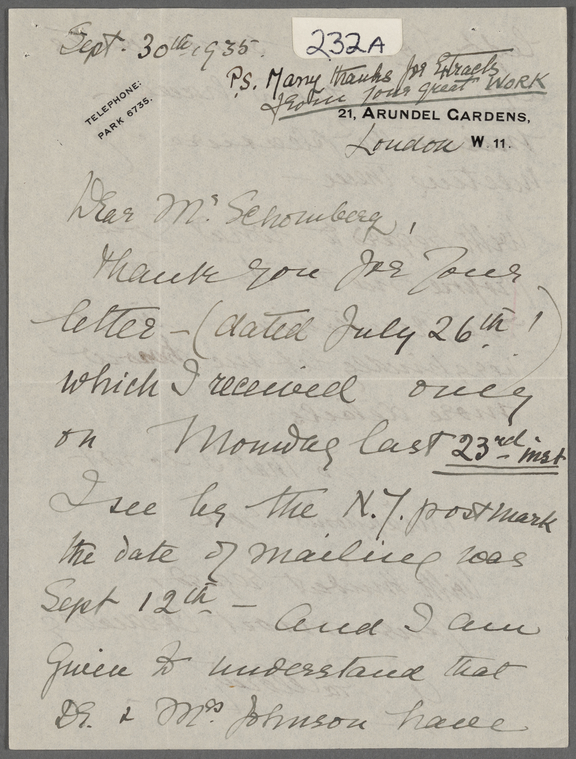 Sept. 30th, 1935.
232A
P.S. Many thanks for Extracts
from your great WORK
TELEPHONE:
PARK 6735.
21, ARUNDEL GARDENS,
London W. 11.
Dear Mr Schomberg,
Thank you for your
letter – (dated July 26th!)
which I received only
on Monday last 23rd inst
I see by the N.Y. postmark
the date of mailing was
Sept 12th – And I am
given to understand that
Dr. & Mrs Johnson have